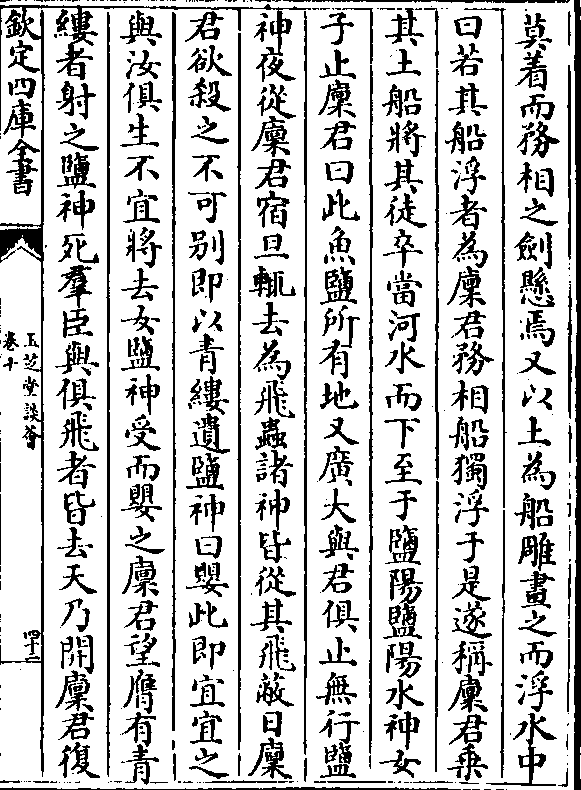 莫着而務相之劍懸焉又以土為船雕畫之而浮水中
曰若其船浮者為廩君務相船獨浮于是遂稱廩君乗
其土船將其徒卒當河水而下至于鹽陽鹽陽水神女
子止廩君曰此魚鹽所有地又廣大與君俱止無行鹽
神夜從廩君宿旦輒去為飛蟲諸神皆從其飛蔽日廩
君欲殺之不可别即以青縷遺鹽神曰嬰此即宜宜之
與汝俱生不宜將去女鹽神受而嬰之廩君望膺有青
縷者射之鹽神死羣臣與俱飛者皆去天乃開廩君復
欽定四庫全書
玉芝堂談薈
卷十
四十二